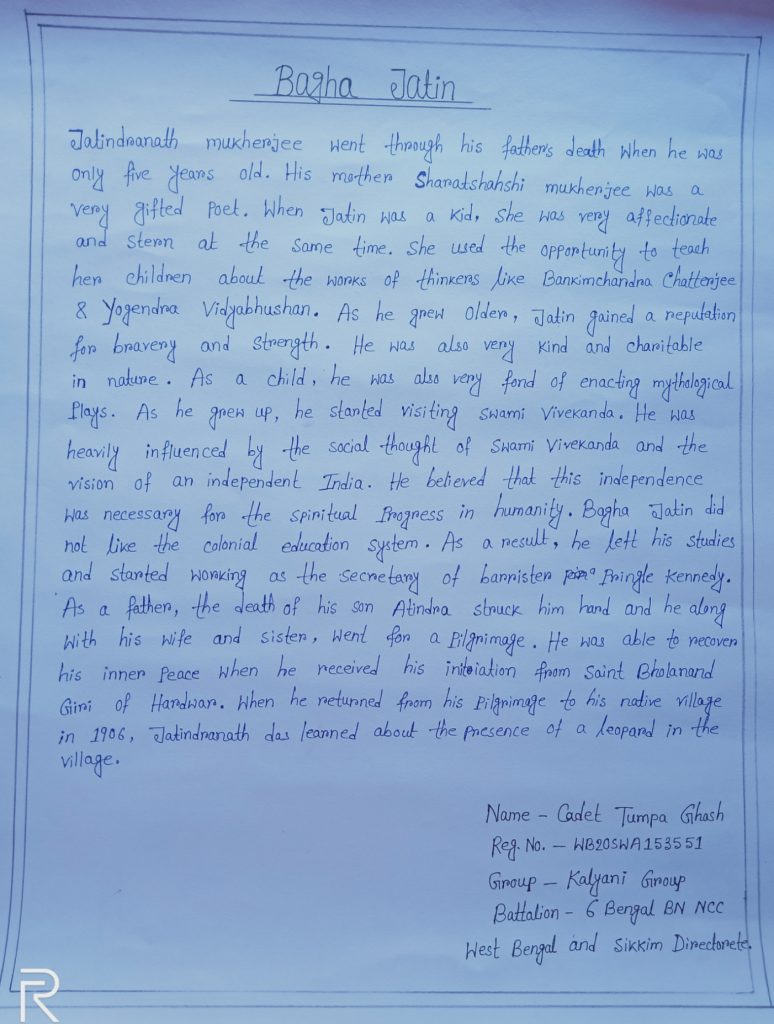 Bagha Jatin
Jatindranath mukherjee went through his father's death when he was
only five years old. His mother Sharatshahshi mukherjee was a
very gifted poet. When Jatin was a kid, she was very affectionate
and stern at the same time. She used the opportunity to teach
her children about the works of thinkers like Bankimchandra Chatterjee
& Yogendra Vidyabhushan. As he grew older, Jatin gained a reputation
for bravery and strength. He was also very kind and charitable
in nature. As a child, he was also very fond of enacting mythological
plays. As he grew up, he started visiting Swami Vivekanda. He was
heavily influenced by the social thought of Swami Vivekanda and the
vision of an independent India. He believed that this independence
was necessary for the spiritual progress in humanity. Bagha Jatin did
not like the colonial education system. As a result, he left his studies
and started working as the secretary of barrister Pringle Kennedy.
As a father, the death of his son Atindra struck him hard and he along
with his wife and sister, went for a pilgrimage. He was able to recover
his inner peace when he received his initoiation from Saint Bholanand
Giri of Hardwar. When he returned from his pilgrimage to his native village
in 1906, Jatindranath das learned about the presence of a leopard in the
village.
Name - Cadet Tumpa Ghash
Reg. No. - WB20SWA153551
Group - Kalyani Group
Battalion - 6 Bengal BN NCC
West Bengal and Sikkim Directorete.
R